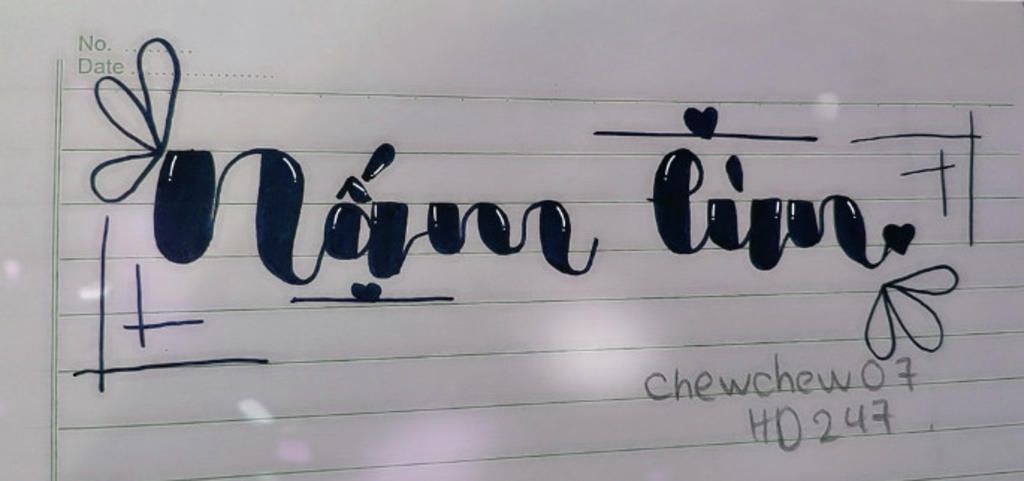 No. ............
Date ........................
Nấm lim
chewchew07
HD247